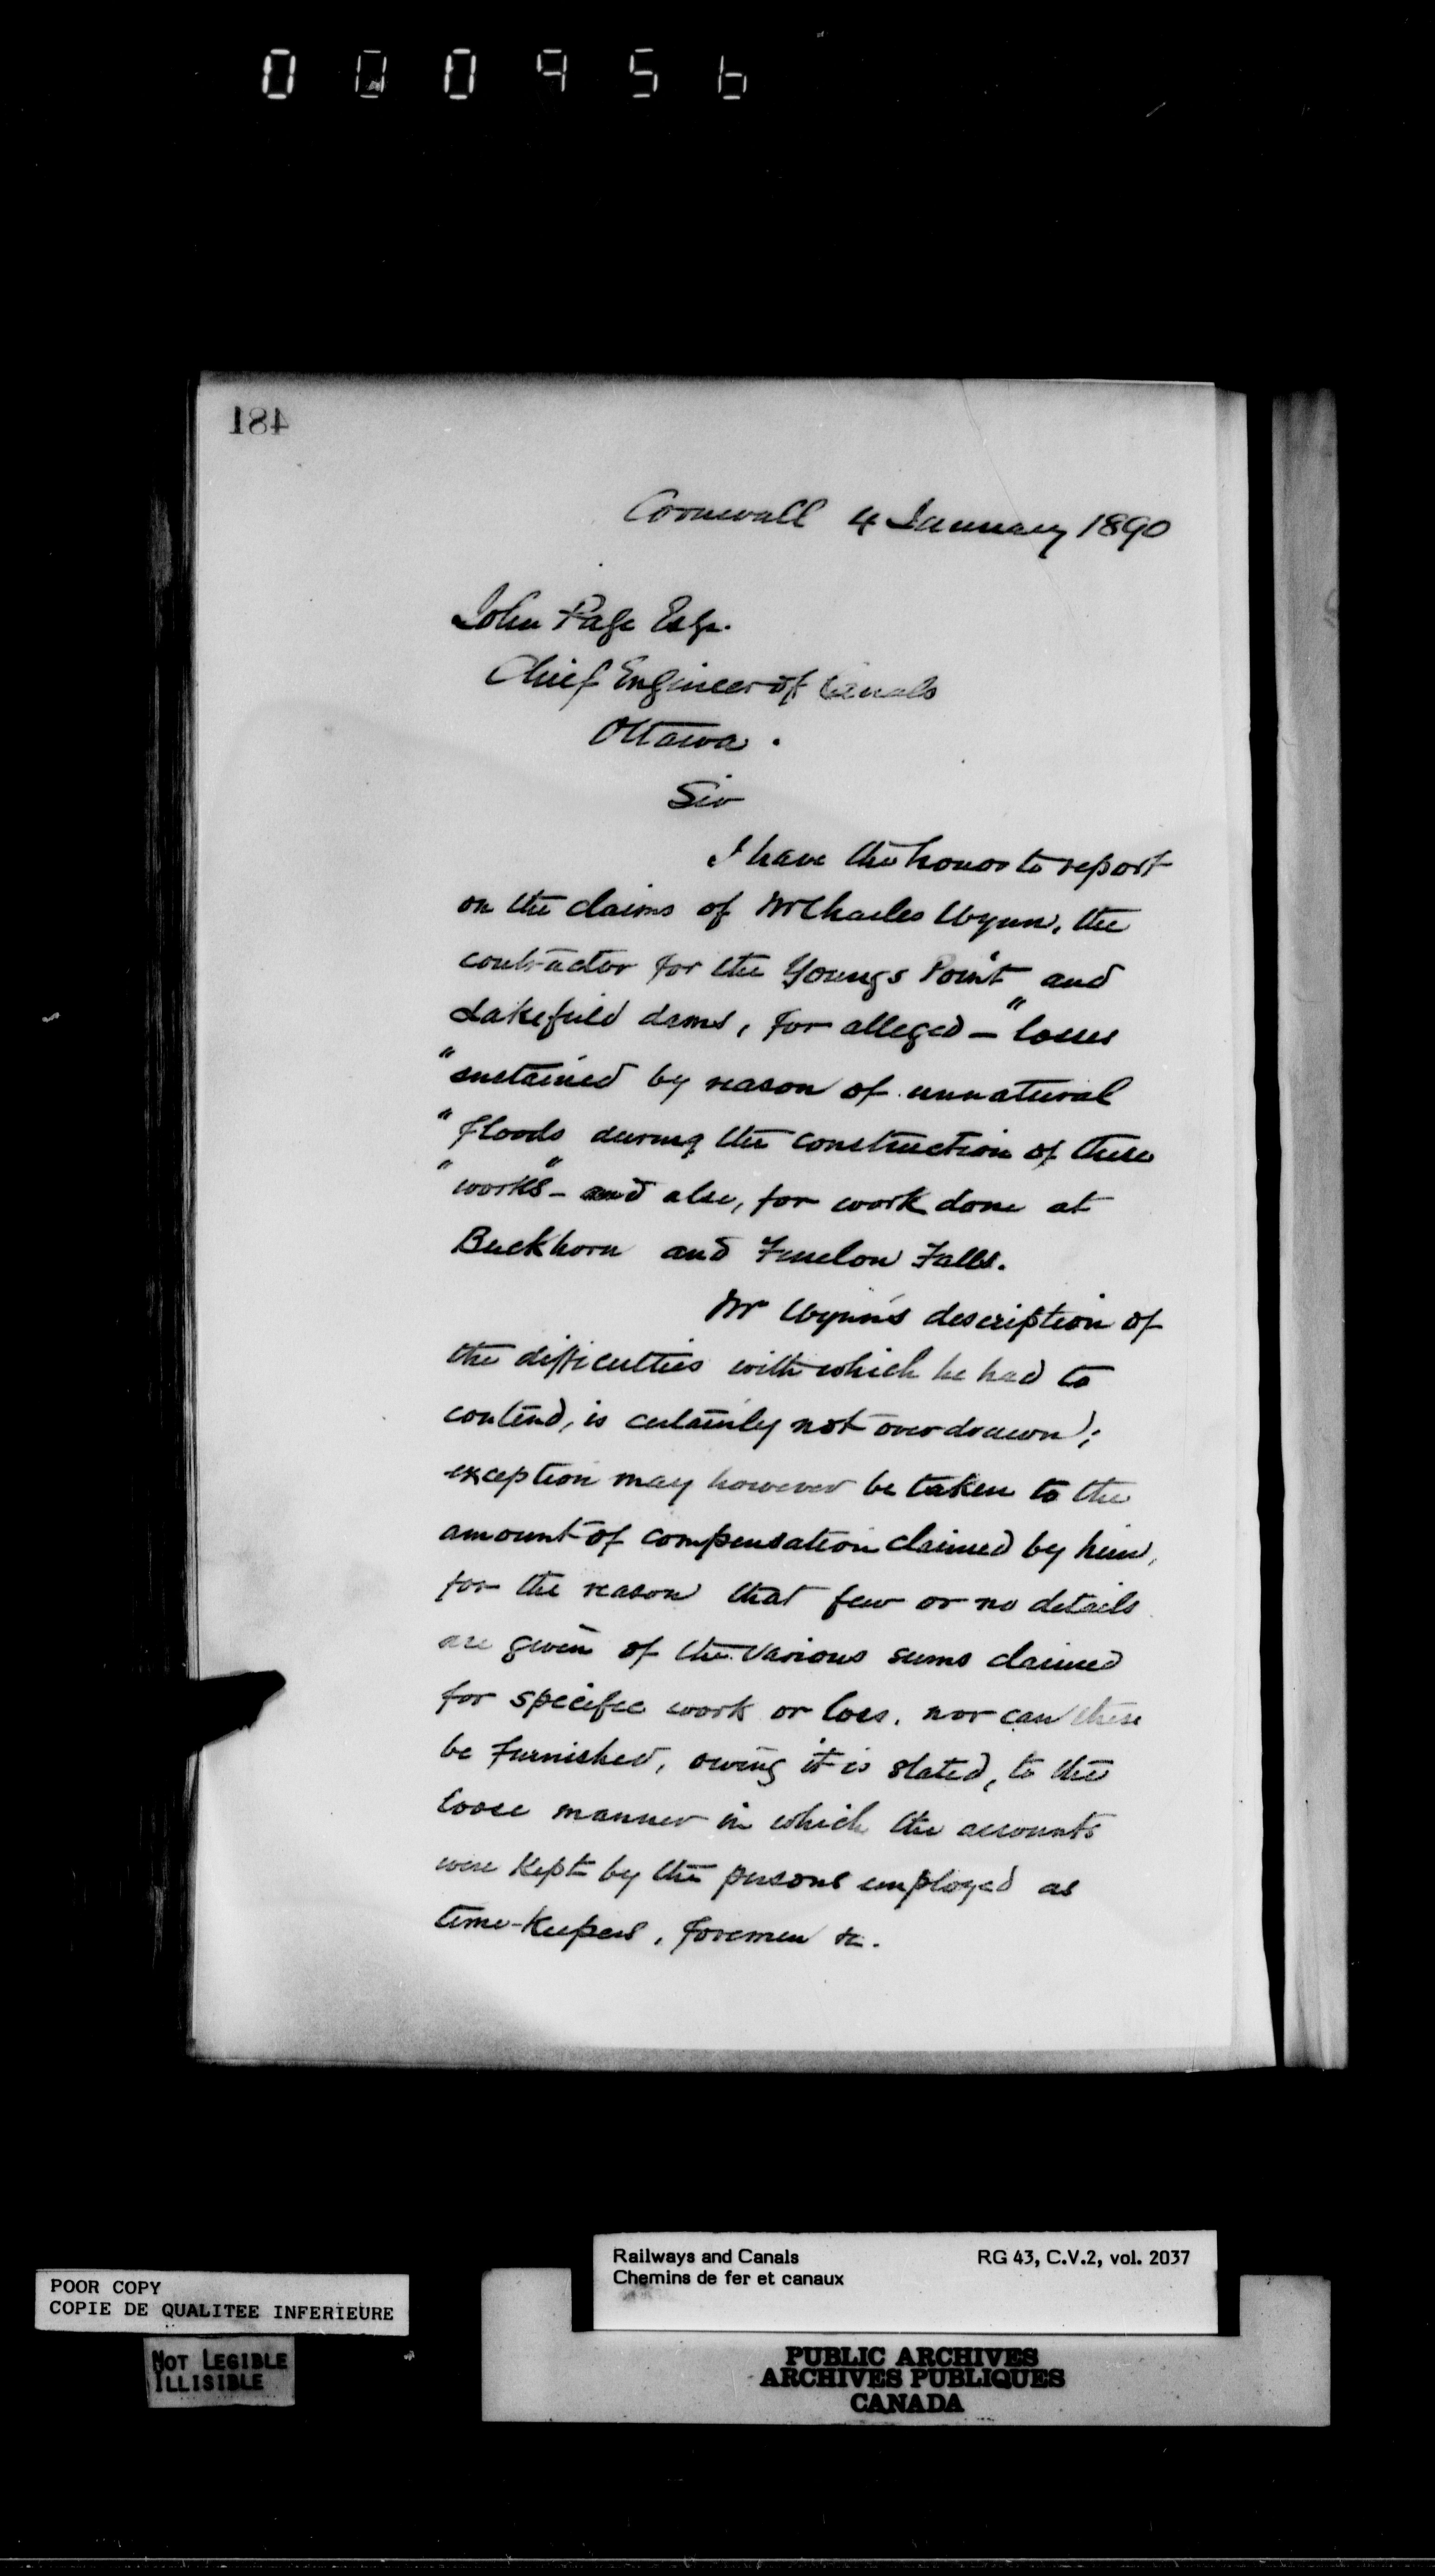 000956
481
Cornwall 4 January 1890
John Page Esqr.
Chief Engineer of Canals
Ottawa.
Sir
I have the honor to report
on the claims of Mr Charles Wynn, the
contractor for the Youngs Point and
Lakefield dams, for alleged - "losses
"sustained by reason of unnatural
"floods during the construction of these
"works" - and also, for work done at
Buckhorn and Fenelon Falls.
Mr Wynn's description of
the difficulties with which he had to
contend, is certainly not overdrawn;
exception may however be taken to the
amount of compensation claimed by him,
for the reason that few or no details
are given of the various sums claimed
for specific work or loss, nor can these
be furnished, owing it is stated, to the
loose manner in which the accounts
were kept by the persons employed as
time-keepers, foremen &c.
Railways and Canals RG 43, C.V.2, vol. 2037
Chemins de fer et canaux
POOR COPY
COPIE DE QUALITEE INFERIEURE
NOT LEGIBLE
ILLISIBLE
PUBLIC ARCHIVES
ARCHIVES PUBLIQUES
CANADA